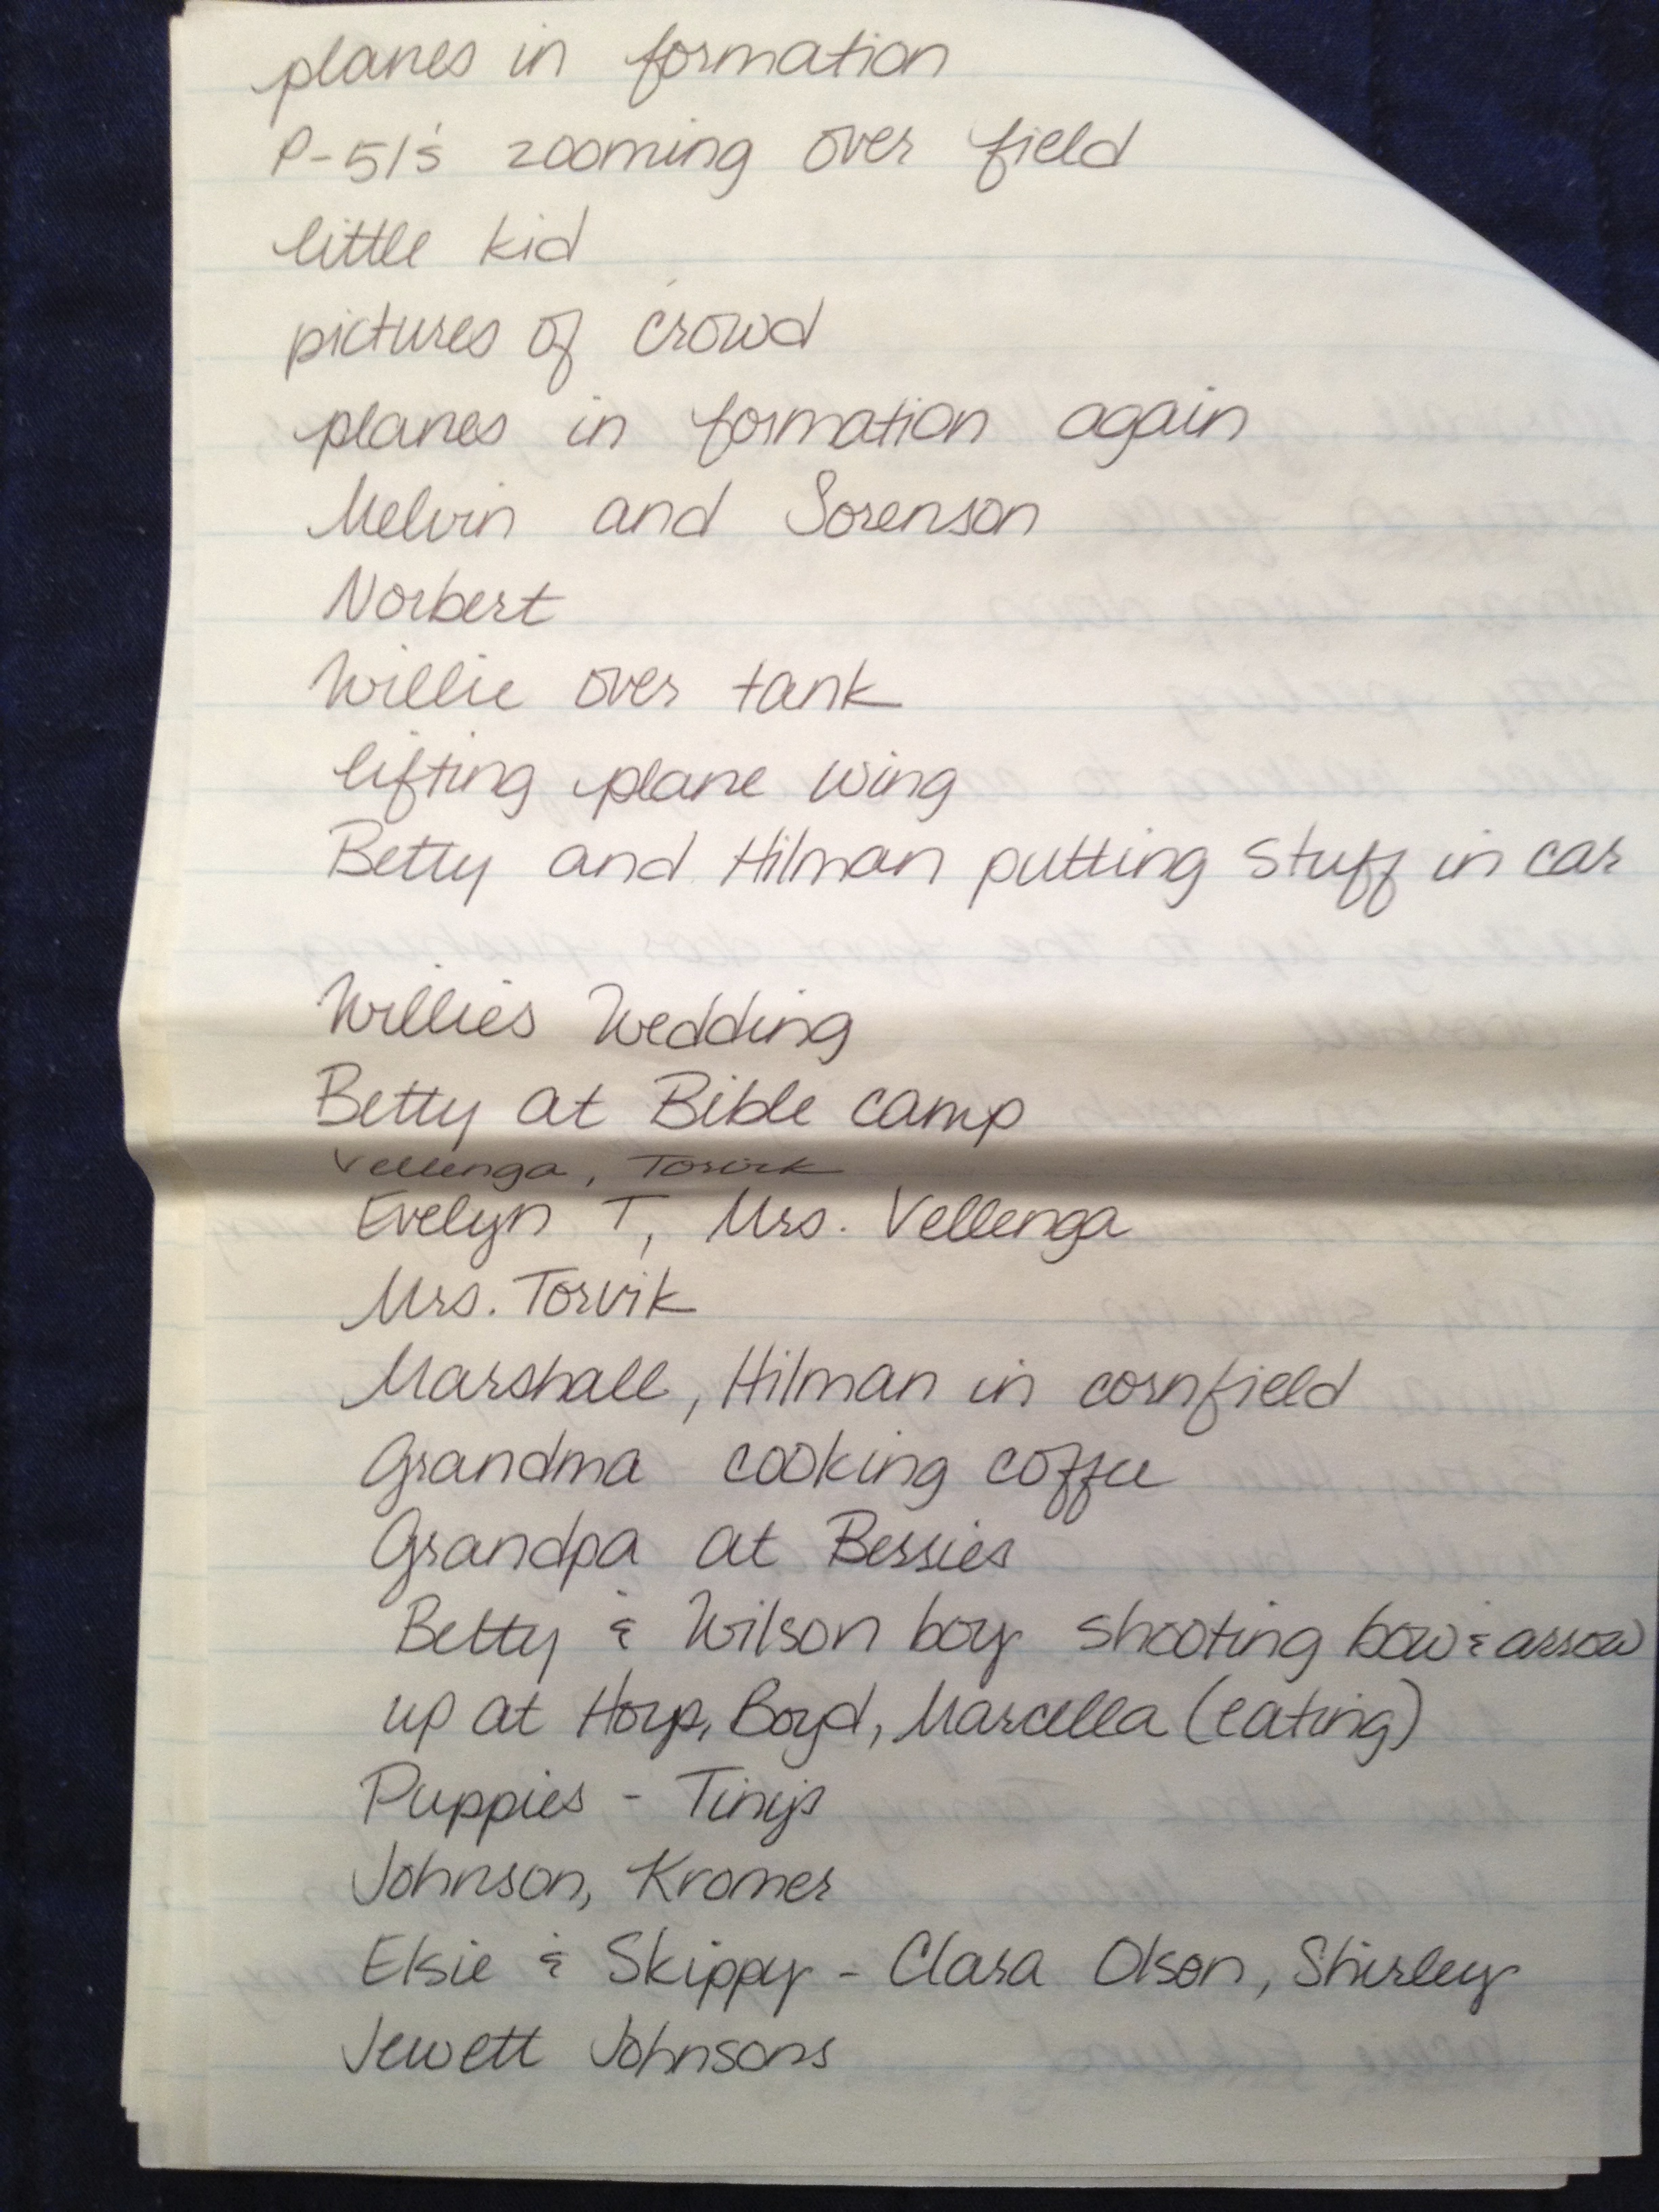 planes in formation
P-51's zooming over field
little kid
pictures of crowd
planes in formation again
Melvin and Sorenson
Norbert
Willie over tank
lifting plane wing
Betty and Hilman putting stuff in car
Willies Wedding
Betty at Bible camp
Vellenga, Torvik
Evelyn T, Mrs. Vellenga
Mrs. Torvik
Marshall, Hilman in cornfield
Grandma cooking coffee
Grandpa at Bessies
Betty & Wilson boy shooting bow & arrow
up at Hoyp, Boyd, Marcella (eating)
Puppies - Tinys
Johnson, Kromer
Elsie & Skippy - Clara Olson, Shirley
Jewett Johnsons